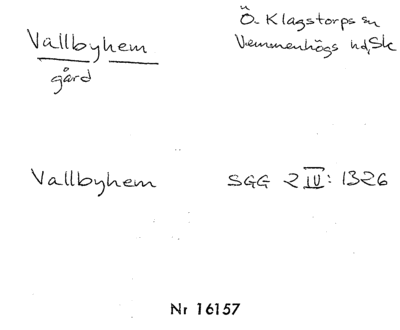 Vallbyhem
gård
Ö. Klagstorps sn
Vemmenhögs hd, Sk
Vallbyhem SGG 2 IV: 1326
Nr 16157